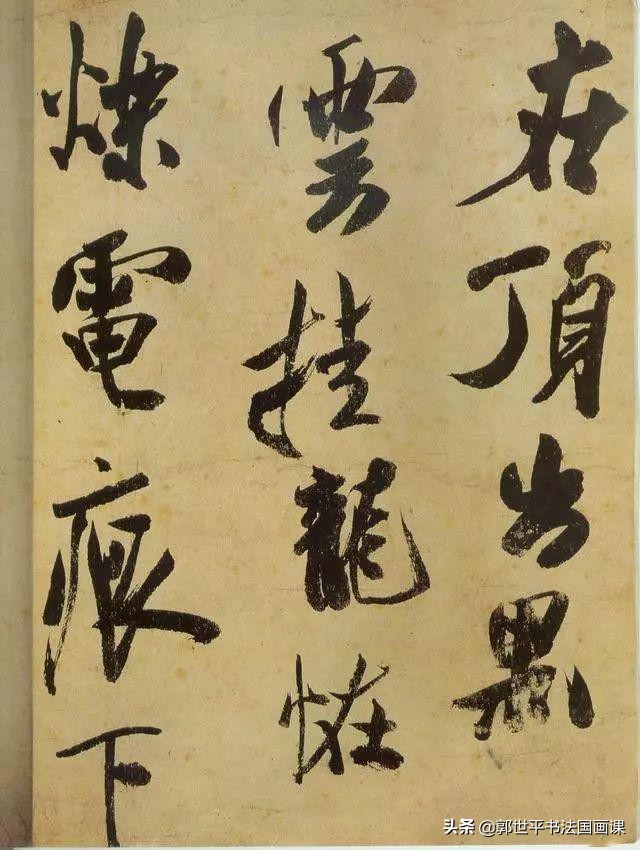 在頂出黑
雲挂龍怪
煉電痕下
头条 @郭世平书法国画课